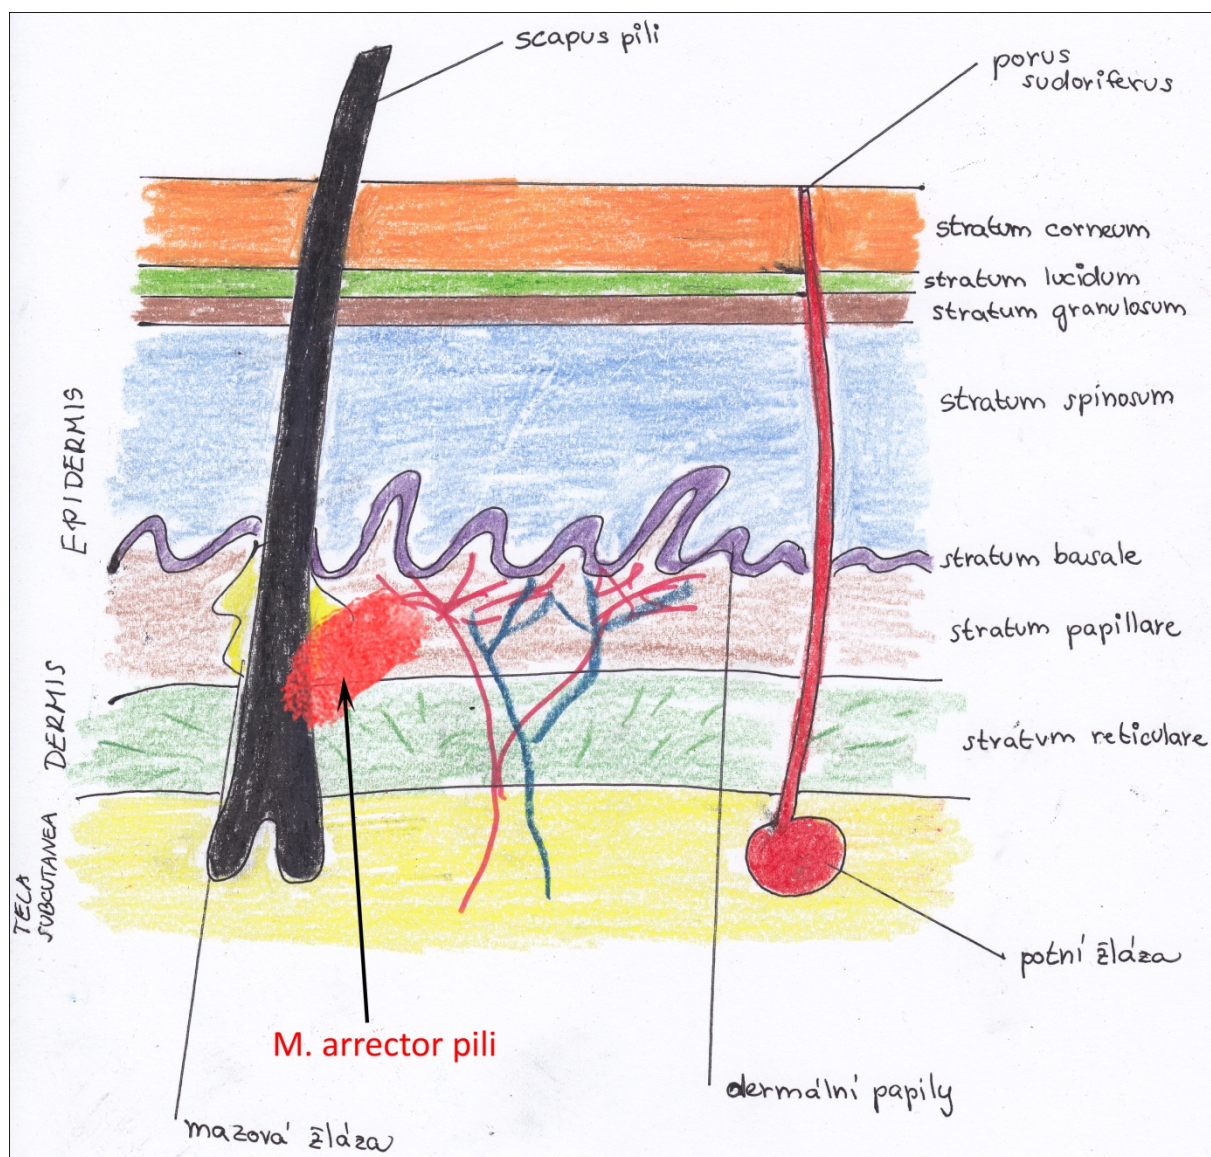 scapus pili
porus
sudoriferus
stratum corneum
stratum lucidum
stratum granulosum
stratum spinosum
EPIDERMIS
stratum basale
stratum papillare
DERMIS
stratum reticulare
TELA
SUBCUTANEA
potní žláza
M. arrector pili
dermální papily
mazová žláza